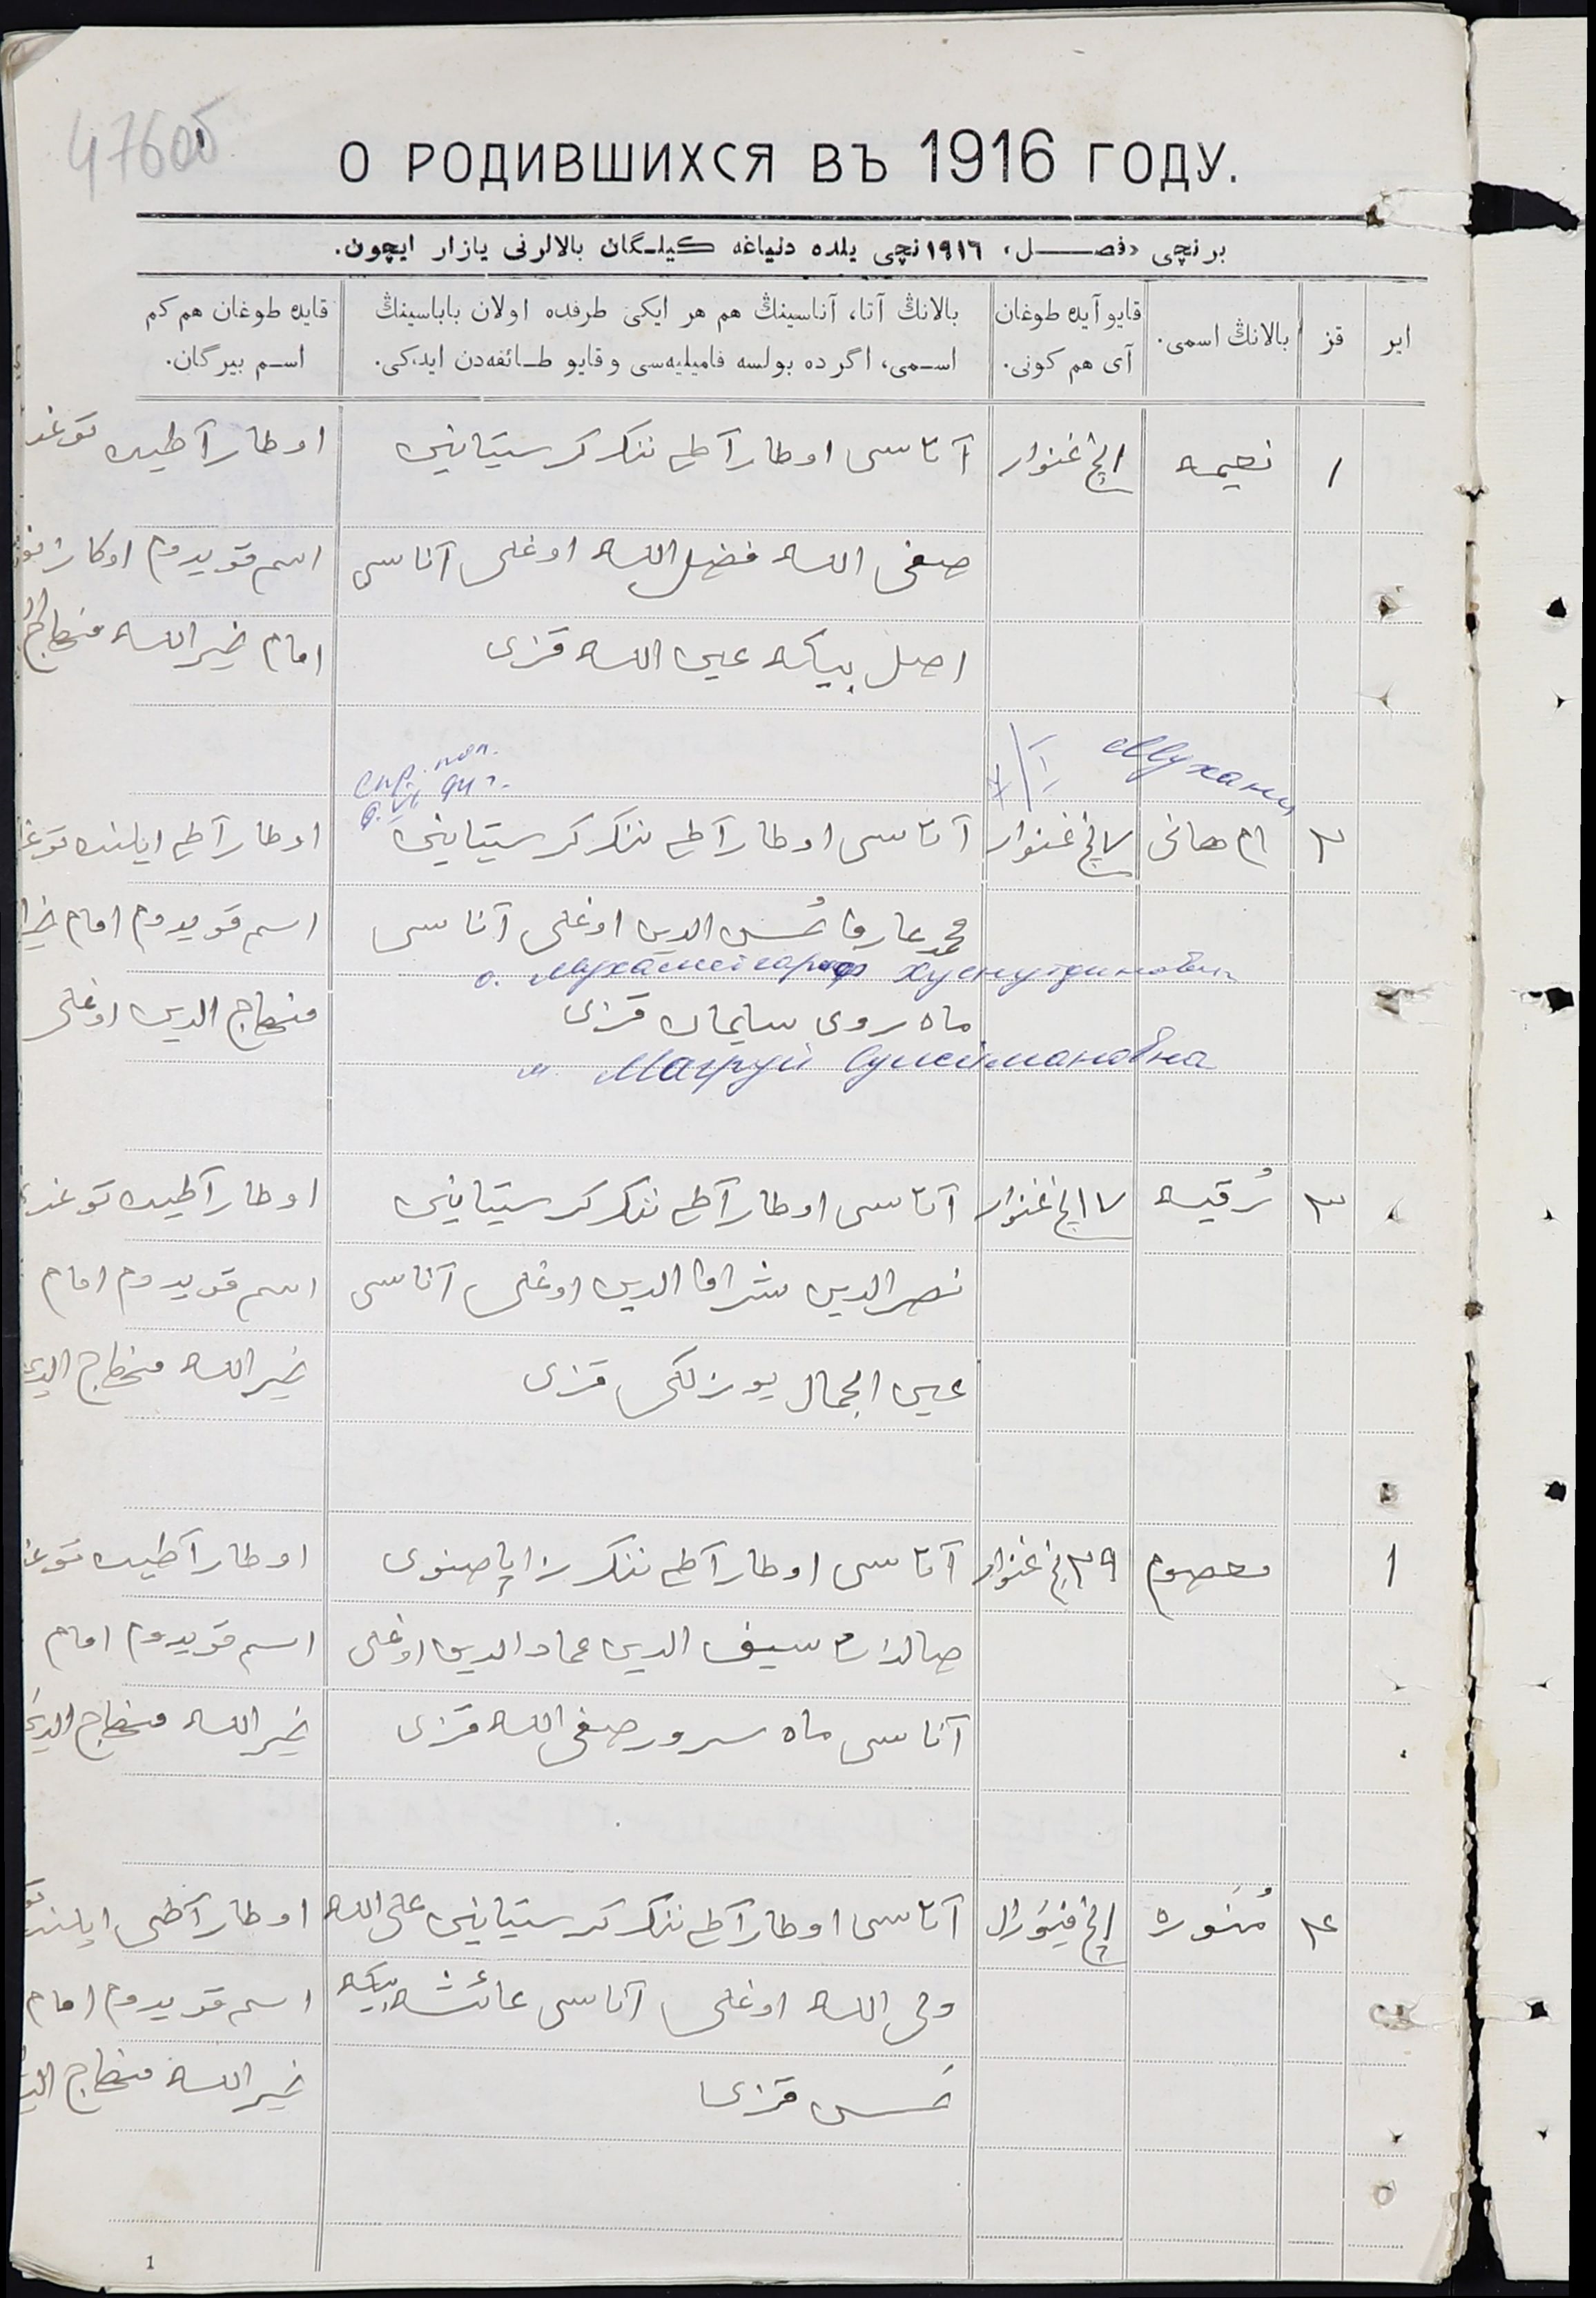 476об
О РОДИВШИХСЯ ВЪ 1916 ГОДУ.
برنچی «فصـــل» ١٩١٦نچی یلده دنیاغه کیلـگان بالالرنی یازار ایچون.
ایر
قز
بالانڭ اسمی.
قایو آیده طوغان
آی هم کونی.
بالانڭ آتا، آناسینڭ هم هر ایکی طرفده اولان باباسینڭ
اسـمی، اگرده بولسه فامیلیه‌سی و قایو طـائفه‌دن ایدکی.
قایده طوغان هم کم
اسـم بیرگان.
١ نعیمه ١نچی غنوار آتاسی اوطار آطی ننکر کرستیانینی
صفی الله فضل الله اوغلی آناسی
اصل بیکه عین الله قزی
اوطار آطیده توغد
اسم قویدوم
امام خیرالله منهاج
Мухани
I
спр. пол.
VI 94 г.
٢ ام هانی ٧نچی غنوار آتاسی اوطار آطی ننکر کرستیانینی
محمد عارف حُسن الدین اوغلی آناسی
о. Мухаметгариф Хуснутдинович
ماه روی سلیمان قزی
м. Магруй Сулеймановна
اوطار آطی ایلنده توغ
اسم قویدوم امام
منهاج الدین اوغلی
٣ رُقیه ١٧نچی غنوار آتاسی اوطار آطی ننکر کرستیانینی
نصرالدین شراف الدین اوغلی آناسی
عین الجمال قزی
اوطار آطیده توغد
اسم قویدوم امام
خیرالله منهاج الدی
١ معصوم ٢٩نچی غنوار آتاسی اوطار آطی ننکر زاپاصنوی
صالدات سیف الدین عماد الدین اوغلی
آناسی ماه سرور صفی الله قزی
اوطار آطیده توغ
اسم قویدوم امام
خیرالله منهاج الدی
٤ مُنَوره ١نچی فیورال آتاسی اوطار آطی ننکر کرستیانینی علی الله
ولی الله اوغلی آناسی عائشه بیکه
حَسن قزی
اوطار آطی ایلنده تو
اسم قویدوم امام
خیرالله منهاج الد
1